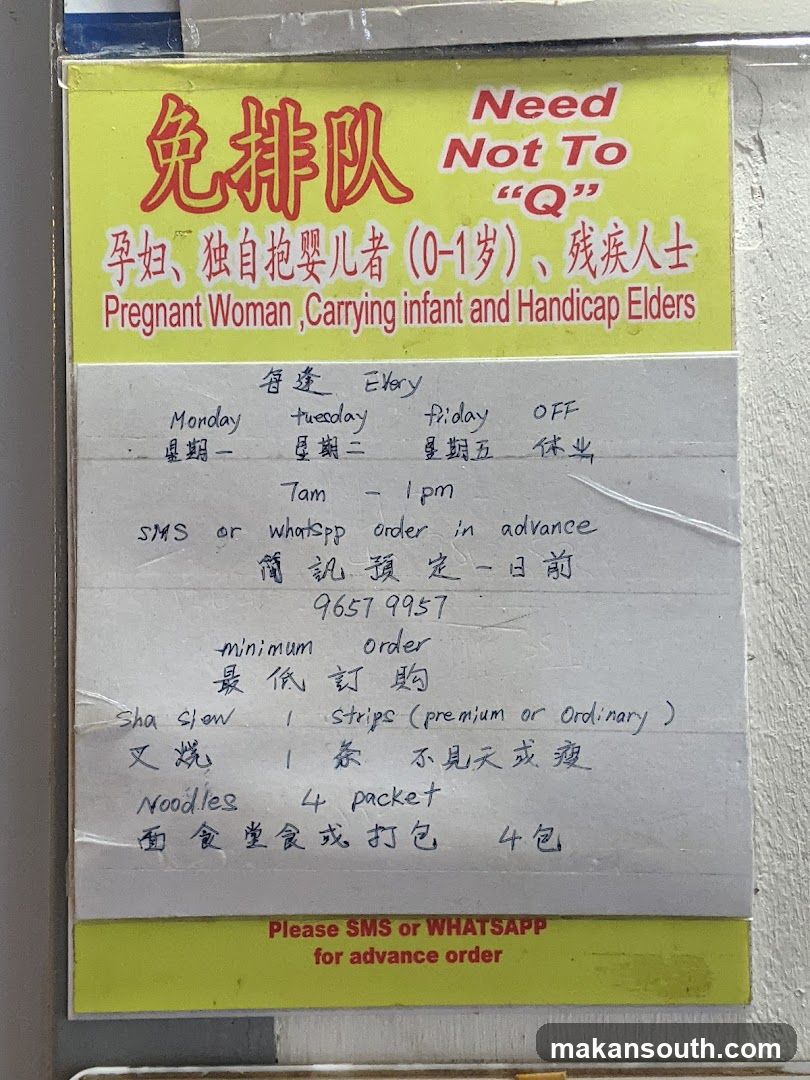 免排队
Need
Not To
“Q”
孕妇、独自抱婴儿者（0-1岁）、残疾人士
Pregnant Woman ,Carrying infant and Handicap Elders
每逢 Every
Monday tuesday friday OFF
星期一 星期二 星期五 休业
7am - 1pm
SMS or whatspp order in advance
簡訊預定一日前
9657 9957
minimum order
最低訂購
Sha Siew 1 strips (premium or ordinary)
叉烧 1 条 不見天或瘦
Noodles 4 packet
面食堂食或打包 4包
Please SMS or WHATSAPP
for advance order
makansouth.com